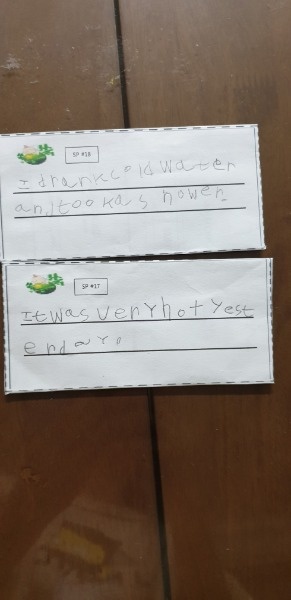 SP #18
I drank cold water
and took a s hower.
SP #17
It was very hot yest
erday.